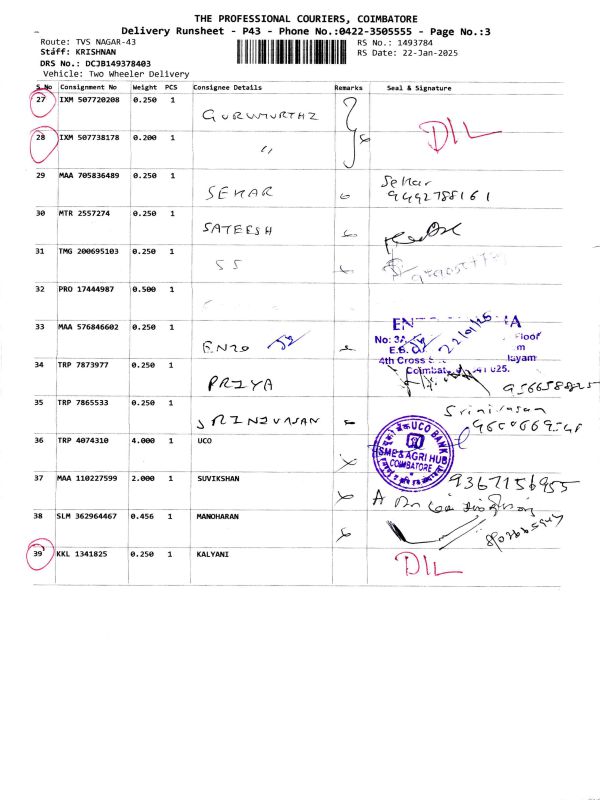 THE PROFESSIONAL COURIERS, COIMBATORE
Delivery Runsheet - P43 - Phone No.:0422-3505555 - Page No.:3
Route: TVS NAGAR-43
RS No.: 1493784
Staff: KRISHNAN
RS Date: 22-Jan-2025
DRS No.: DCJB149378403
Vehicle: Two Wheeler Delivery
S.No Consignment No Weight PCS Consignee Details Remarks Seal & Signature
27 IXM 507720208 0.250 1 GURUMURTHZ
28 IXM 507738178 0.200 1 〃 DIL
29 MAA 705836489 0.250 1 SEKAR Sekar
9492788161
30 MTR 2557274 0.250 1 SATEESH
31 TMG 200695103 0.250 1 SS
32 PRO 17444987 0.500 1
33 MAA 576846602 0.250 1 ENZO
No: 3A Floor
E.B.
4th Cross
Coimbat 025.
22/01/25
34 TRP 7873977 0.250 1 PRIYA
35 TRP 7865533 0.250 1 SRINIVASAN Srinivasan
36 TRP 4074310 4.000 1 UCO
UCO BANK
SME & AGRI HUB
COIMBATORE
37 MAA 110227599 2.000 1 SUVIKSHAN 9367156955
38 SLM 362964467 0.456 1 MANOHARAN
39 KKL 1341825 0.250 1 KALYANI DIL